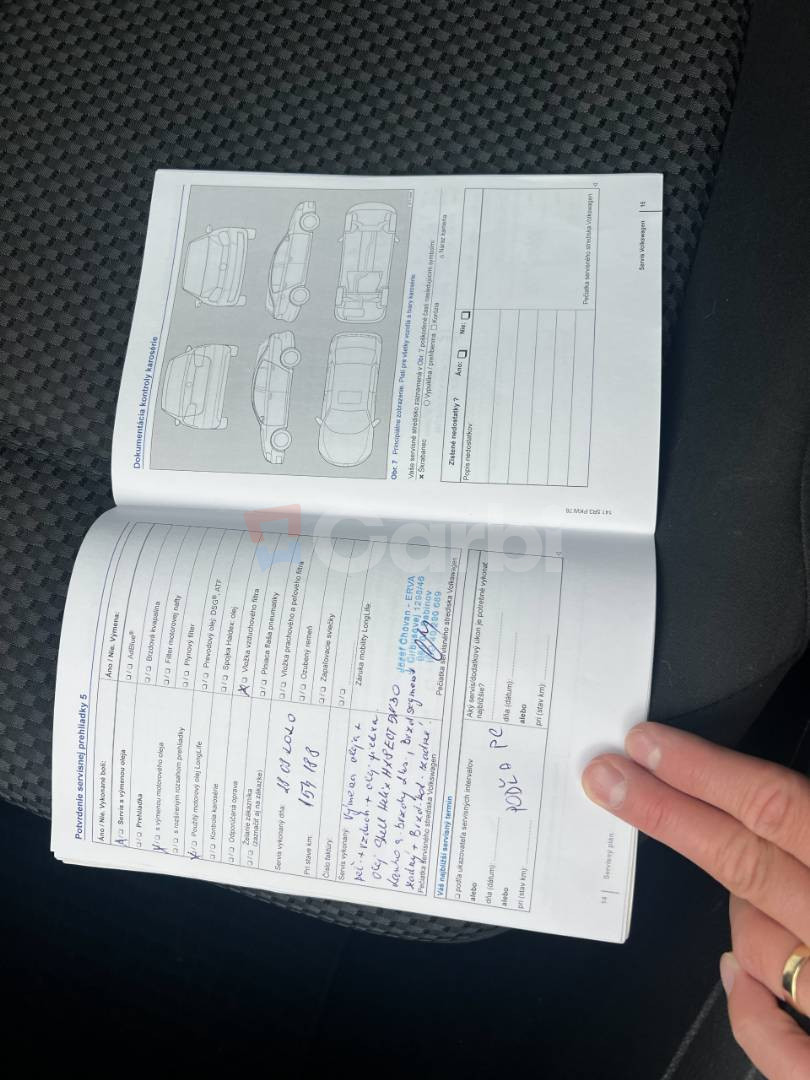 Potvrdenie servisnej prehliadky 5
Áno / Nie. Vykonané boli:
Servis s výmenou oleja
Prehliadka
s výmenou motorového oleja
s rozšíreným rozsahom prehliadky
Použitý motorový olej LongLife
Kontrola karosérie
Odporúčaná oprava
Želanie zákazníka
(zaznačiť aj na zákazke)
Servis vykonaný dňa: 28 08 2020
Pri stave km: 154 188
Číslo faktúry:
Servis vykonaný: Výmena oleja +
+ vzduch + olej
olej Shell Helix 5W30
Pečiatka servisného strediska Volkswagen
Váš najbližší servisný termín
podľa ukazovateľa servisných intervalov
alebo
dňa (dátum):
alebo
pri (stav km):
PODĽA PC
Áno / Nie. Výmena:
AdBlue®
Brzdová kvapalina
Filter motorovej nafty
Plynový filter
Prevodový olej: DSG®, ATF
Spojka Haldex: olej
Vložka vzduchového filtra
Plniaca fľaša pneumatiky
Vložka prachového a peľového filtra
Ozubený remeň
Zapaľovacie sviečky
Záruka mobility LongLife
Jozef Chovan - ERVA
1298/46
Pečiatka servisného strediska Volkswagen
Aký servis/dodatkový úkon je potrebné vykonať
najbližšie?
dňa (dátum):
alebo
pri (stav km):
14 Servisný plán
Dokumentácia kontroly karosérie
Obr. 7 Principiálne zobrazenie. Platí pre všetky vozidlá a tvary karosérie.
Vaše servisné stredisko zaznamená v Obr. 7 poškodené časti nasledujúcimi symbolmi:
x Škrabanec
○ Vypuklina / preliačenina
□ Korózia
△ Náraz kameňa
Zistené nedostatky ?
Áno: □
Nie: □
Popis nedostatkov:
Pečiatka servisného strediska Volkswagen
141.5R3.PKW.76
Servis Volkswagen 15
Carbi